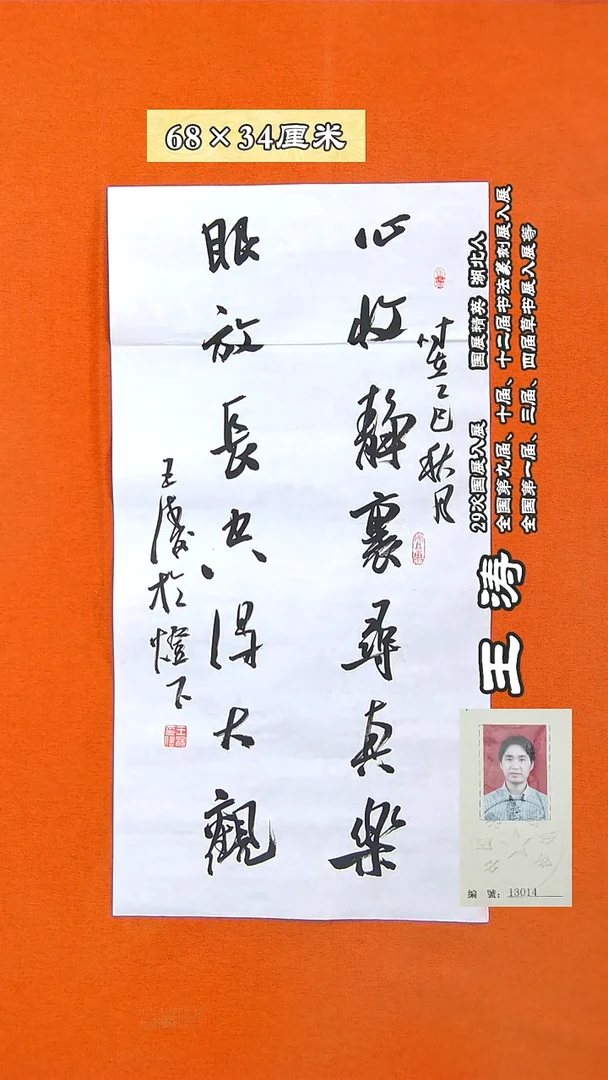 68×34厘米
心收静裏尋真樂
眼放長空得大觀
時在乙巳秋月
王濤於燈下
王涛
29次国展入展 国展精英 湖北人
全国第九届、十届、十二届书法篆刻展入展
全国第一届、三届、四届草书展入展等
编 號：13014